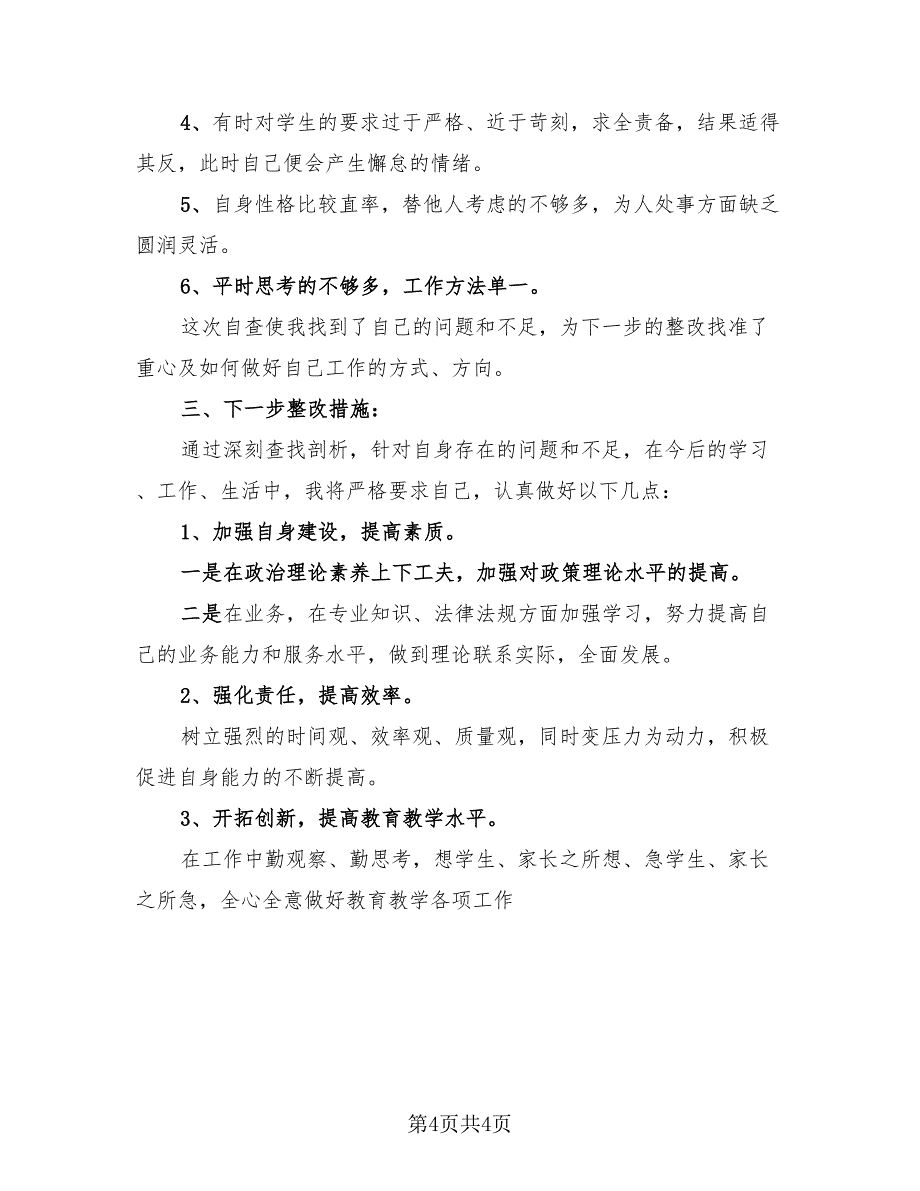 4、有时对学生的要求过于严格、近于苛刻，求全责备，结果适得
其反，此时自己便会产生懈怠的情绪。
5、自身性格比较直率，替他人考虑的不够多，为人处事方面缺乏
圆润灵活。
6、平时思考的不够多，工作方法单一。
这次自查使我找到了自己的问题和不足，为下一步的整改找准了
重心及如何做好自己工作的方式、方向。
三、下一步整改措施：
通过深刻查找剖析，针对自身存在的问题和不足，在今后的学习
、工作、生活中，我将严格要求自己，认真做好以下几点：
1、加强自身建设，提高素质。
一是在政治理论素养上下工夫，加强对政策理论水平的提高。
二是在业务，在专业知识、法律法规方面加强学习，努力提高自
己的业务能力和服务水平，做到理论联系实际，全面发展。
2、强化责任，提高效率。
树立强烈的时间观、效率观、质量观，同时变压力为动力，积极
促进自身能力的不断提高。
3、开拓创新，提高教育教学水平。
在工作中勤观察、勤思考，想学生、家长之所想、急学生、家长
之所急，全心全意做好教育教学各项工作
第4页共4页